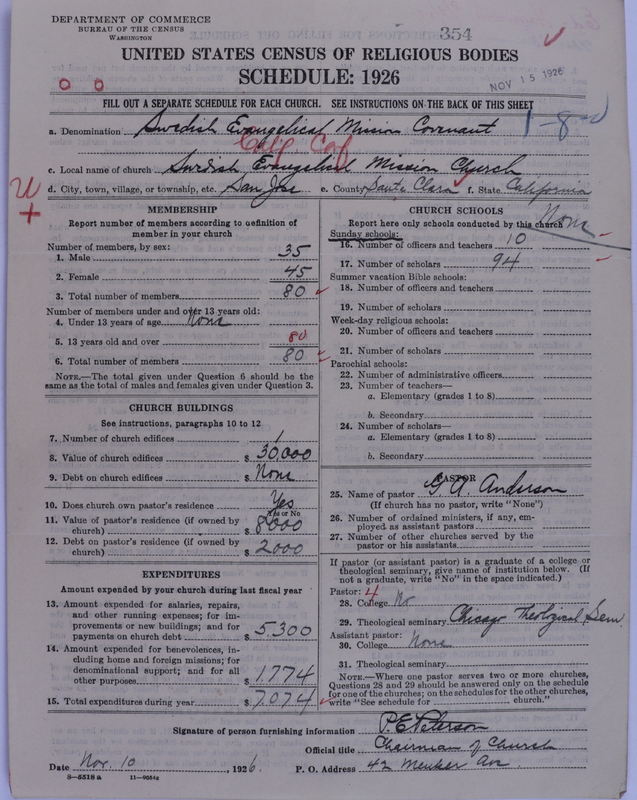 DEPARTMENT OF COMMERCE
BUREAU OF THE CENSUS
WASHINGTON
354
UNITED STATES CENSUS OF RELIGIOUS BODIES
SCHEDULE: 1926
NOV 15 1926
FILL OUT A SEPARATE SCHEDULE FOR EACH CHURCH. SEE INSTRUCTIONS ON THE BACK OF THIS SHEET
a. Denomination Swedish Evangelical Mission Covenant
1-8
Calif. Conf
c. Local name of church Swedish Evangelical Mission Church
d. City, town, village, or township, etc. San Jose e. County Santa Clara f. State California
MEMBERSHIP
Report number of members according to definition of member in your church
Number of members, by sex:
1. Male 35
2. Female 45
3. Total number of members 80
Number of members under and over 13 years old:
4. Under 13 years of age None
5. 13 years old and over 80
6. Total number of members 80
NOTE.—The total given under Question 6 should be
same as the total of males and females given under Question 3.
CHURCH BUILDINGS
See instructions, paragraphs 10 to 12
7. Number of church edifices 1
8. Value of church edifices $ 30,000
9. Debt on church edifices $ None
10. Does church own pastor's residence Yes
Yes or No
11. Value of pastor's residence (if owned by
church) $ 8000
12. Debt on pastor's residence (if owned by
church) $ 2000
EXPENDITURES
Amount expended by your church during last fiscal year
13. Amount expended for salaries, repairs,
and other running expenses; for im-
provements or new buildings; and for
payments on church debt $ 5,300
14. Amount expended for benevolences, in-
cluding home and foreign missions; for
denominational support; and for all
other purposes $ 1,774
15. Total expenditures during year $ 7,074
CHURCH SCHOOLS
Report here only schools conducted by this church
None
Sunday schools:
16. Number of officers and teachers 10
17. Number of scholars 94
Summer vacation Bible schools:
18. Number of officers and teachers
19. Number of scholars
Week-day religious schools:
20. Number of officers and teachers
21. Number of scholars
Parochial schools:
22. Number of administrative officers
23. Number of teachers—
a. Elementary (grades 1 to 8)
b. Secondary
24. Number of scholars—
a. Elementary (grades 1 to 8)
b. Secondary
PASTOR
25. Name of pastor G. A. Anderson
(If church has no pastor, write "None")
26. Number of ordained ministers, if any, em-
ployed as assistant pastors
27. Number of other churches served by the
pastor or his assistants
If pastor (or assistant pastor) is a graduate of a college or
theological seminary, give name of institution below. (If
not a graduate, write "No" in the space indicated.)
Pastor: 4
28. College No
29. Theological seminary Chicago Theological Sem.
Assistant pastor:
30. College None
31. Theological seminary
NOTE.—Where one pastor serves two or more churches,
Questions 28 and 29 should be answered only on the schedule
for one of the churches; on the schedules for the other churches,
write "See schedule for church."
Signature of person furnishing information P. E. Peterson
Official title Chairman of Church
Date Nov. 10, 1926. P. O. Address 42 Av.
8-5518 a 11-9054g